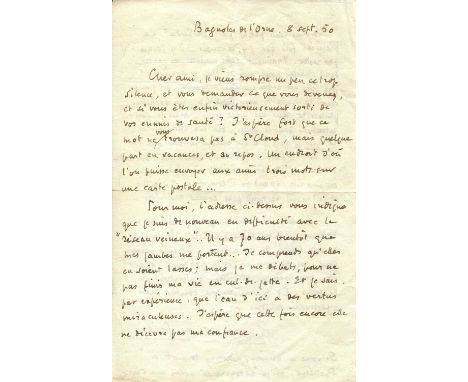 Bagnoles de l'Orne, 8 sept. 50
Cher ami, je viens rompre un peu ce trop
silence, et vous demander ce que vous devenez,
et si vous êtes enfin victorieusement sorti de
vos ennuis de santé ? J'espère fort que ce
mot ne vous trouvera pas à St Cloud, mais quelque
part en vacances, et au repos. Un endroit d'où
l'on puisse envoyer aux amis trois mots sur
une carte postale...
Pour moi, l'adresse ci-dessus vous indique
que je suis de nouveau en difficulté avec le
"réseau veineux"... Il y a 70 ans bientôt que
mes jambes me portent... Je comprends qu'elles
en soient lasses ; mais je me débats, pour ne
pas finir ma vie en cul-de-jatte. Et je sais,
par expérience, que l'eau d'ici a des vertus
miraculeuses. J'espère que cette fois encore elle
ne décevra pas ma confiance.